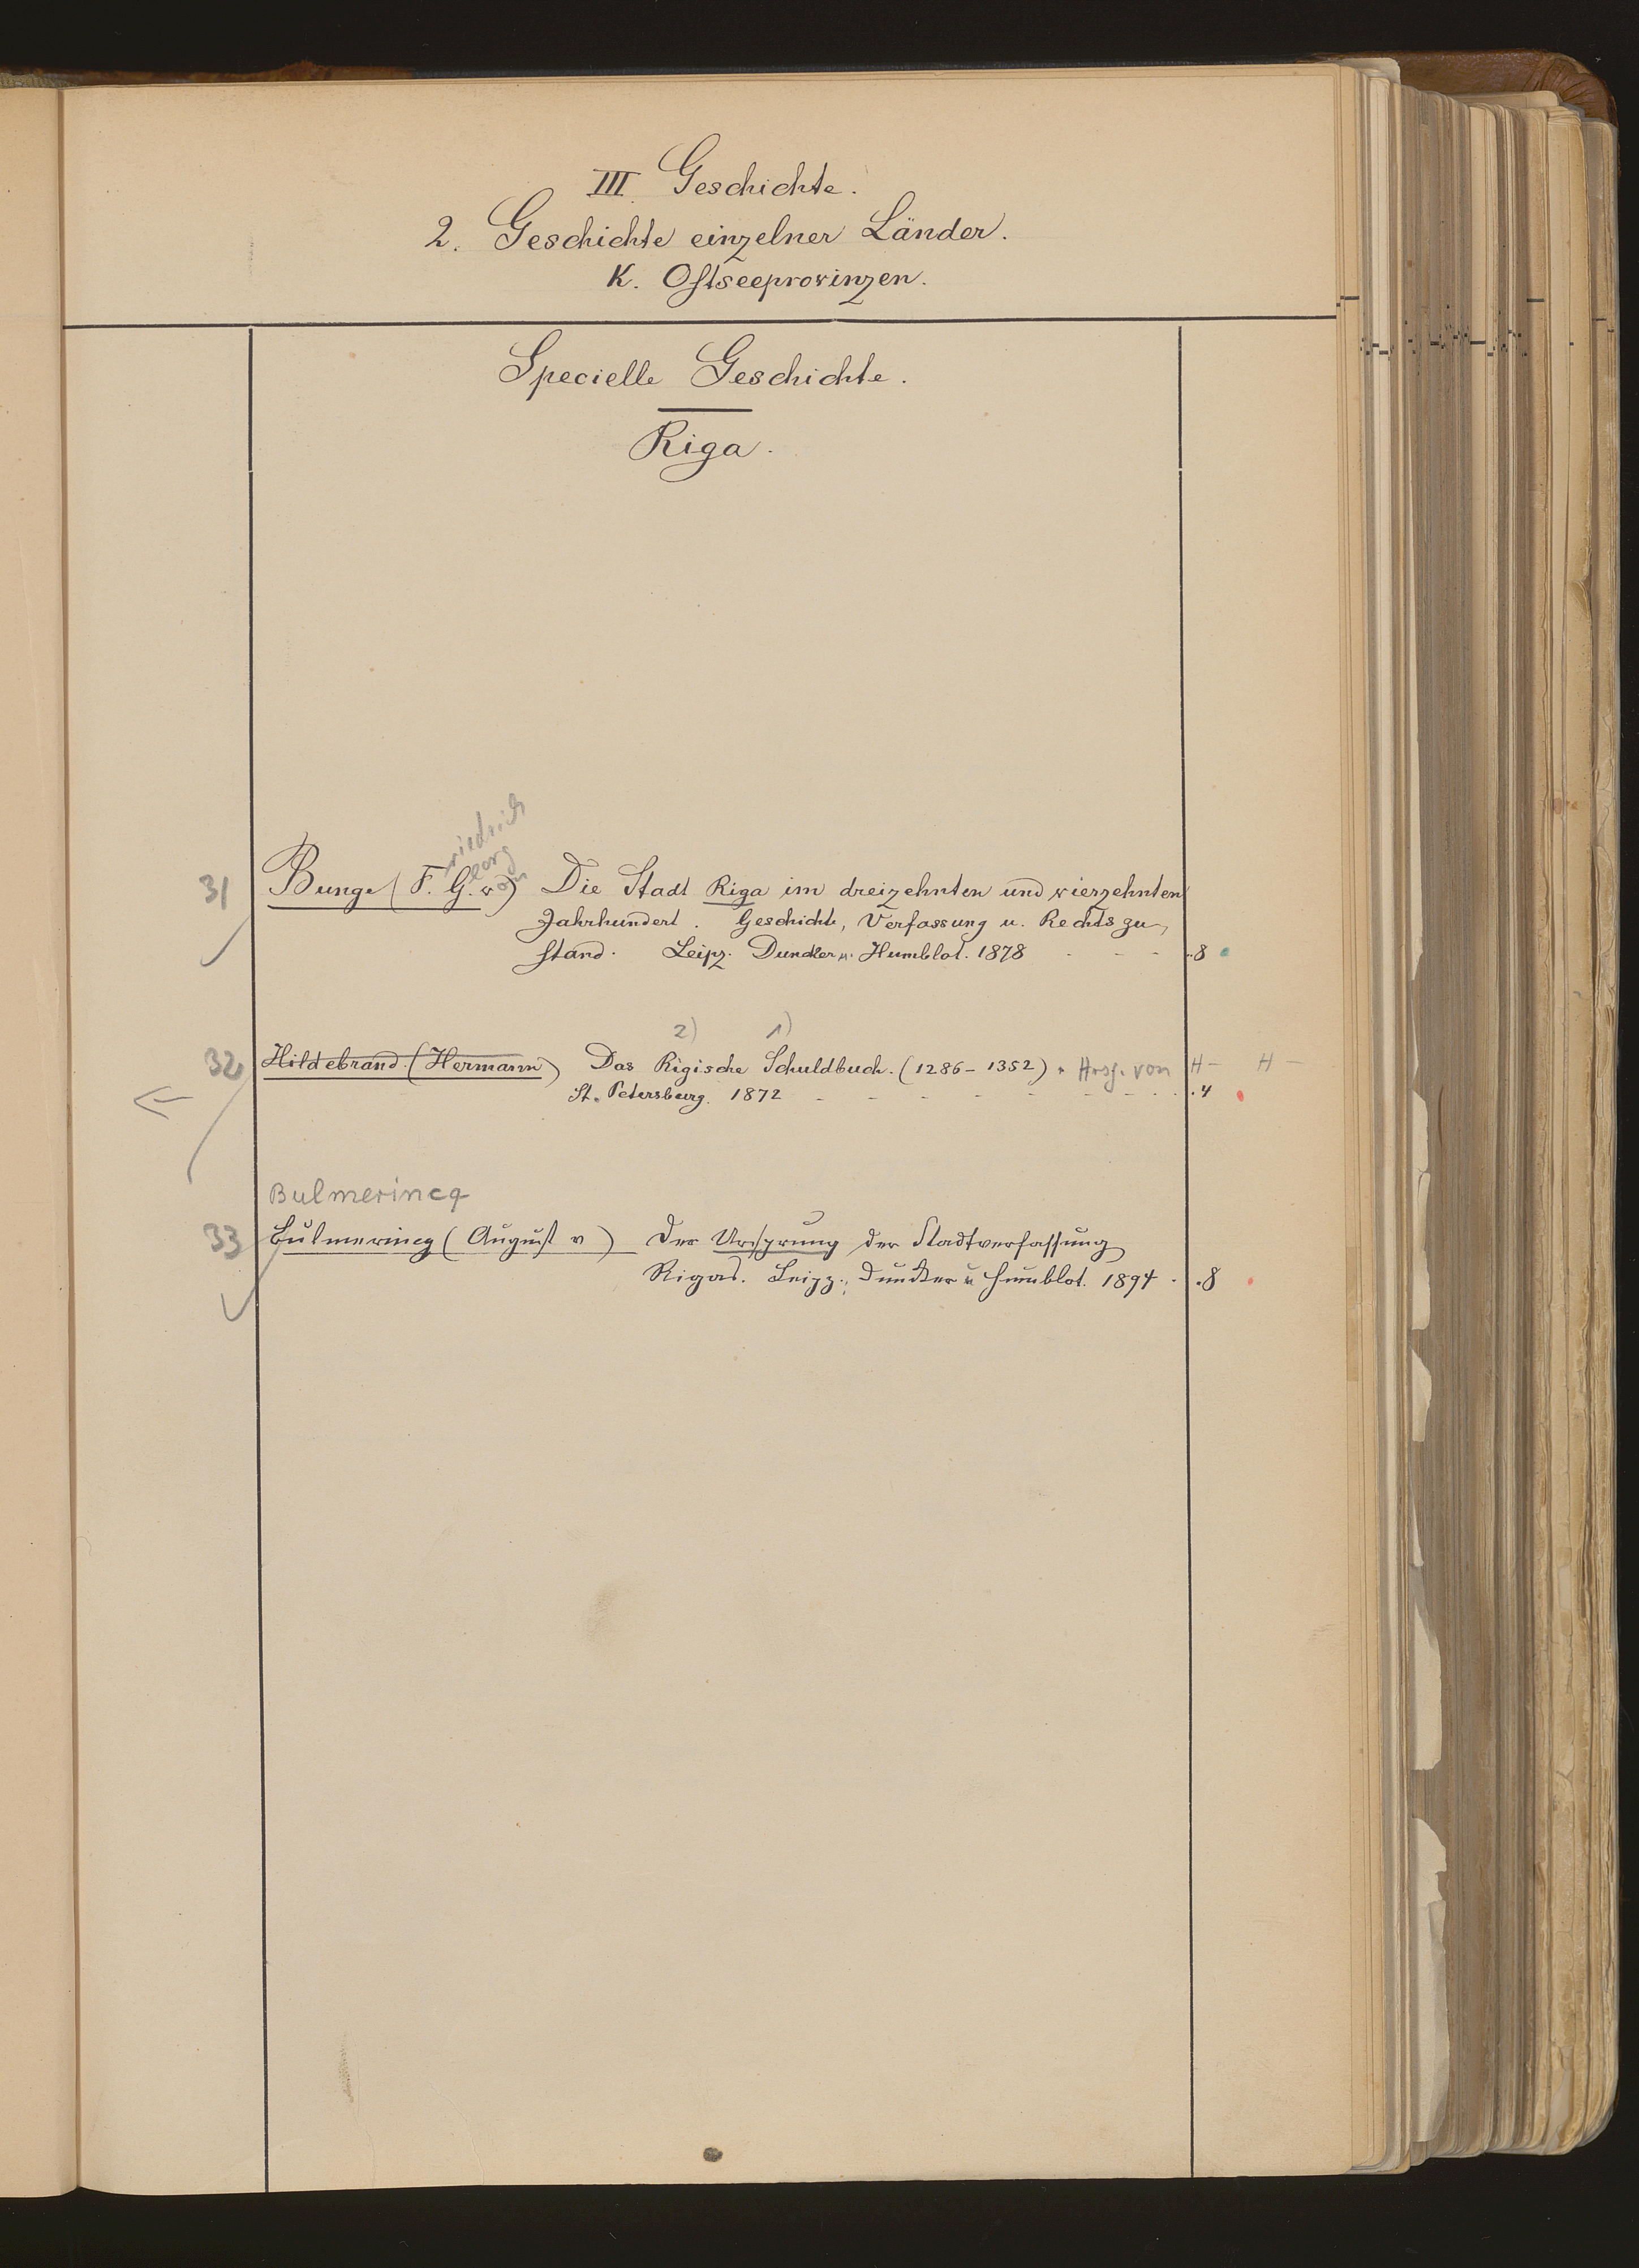 III. Geschichte.
2. Geschichte einzelner Länder.
K. Ostseeprovinzen.
Specielle Geschichte.
Riga.
riedrich
eorg
on
31 Bunge (F. G. v.) Die Stadt Riga im dreizehnten und vierzehnten
Jahrhundert. Geschichte, Verfassung u. Rechtszu-
stand. Leipz. Duncker u. Humblot. 1878 - - - ..8
2) 1)
32 Hildebrand (Hermann) Das Rigische Schuldbuch. (1286-1352) . Hrsg. von H- H-
St. Petersburg. 1872 - - - - - - - . 4
Bulmerincq
33 Bulmerincq (August v) Der Ursprung der Stadtverfassung
Rigas. Leipz., Duncker u Humblot. 1894 . .8